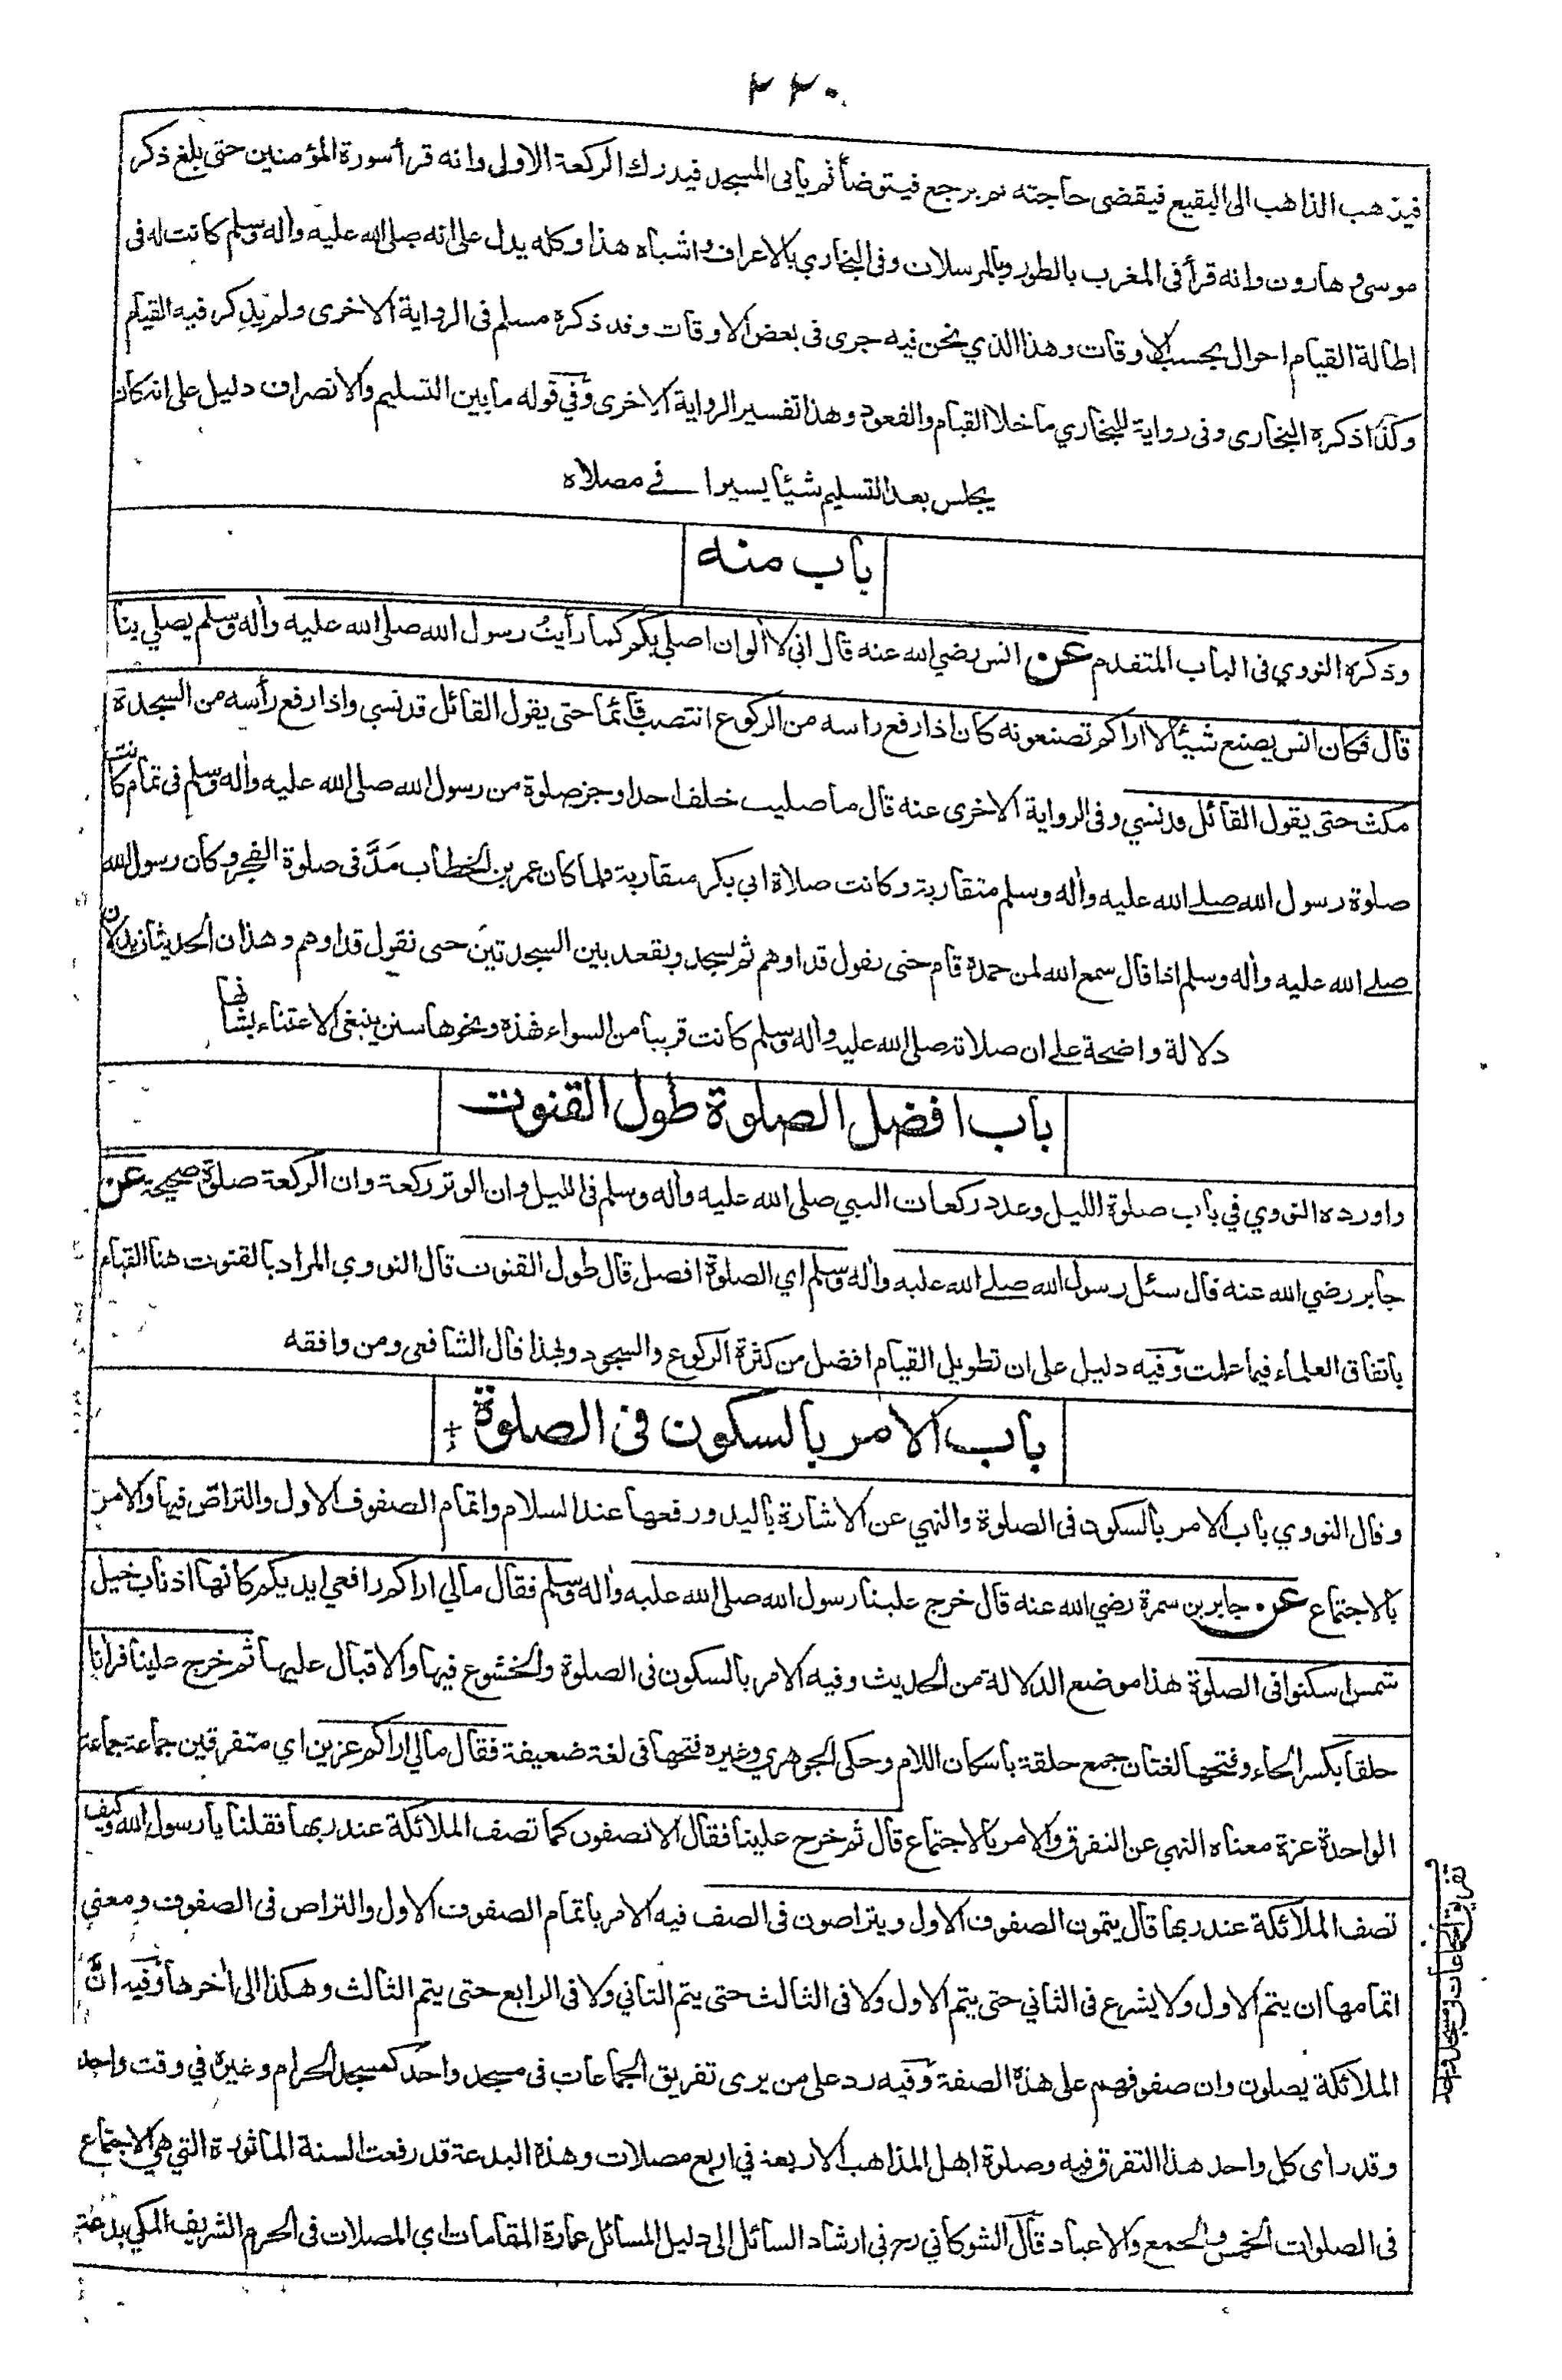 ٢٢٠
فيذهب الذاهب الى البقيع فيقضى حاجته ثم يرجع فيتوضأ ثم ياتى المسجد فيدرك الركعة الاولى وانه قرأ سورة المؤمنين حتى بلغ ذكر
موسى وهارون وانه قرأ فى المغرب بالطور وبالمرسلات وفى البخاري بالاعراف واشباه هذا وكله يدل على انه صلى الله عليه واله وسلم كانت له فى
اطالة القيام احوال بحسب الاوقات وهذا الذي نحن فيه جرى فى بعض الاوقات وقد ذكره مسلم فى الرواية الاخرى ولم يذكر فيه القيام
وكذا ذكره البخارى وفى رواية للبخاري ما خلا القيام والقعود وهذا تفسير الرواية الاخرى وفي قوله ما بين التسليم والانصراف دليل على انه كان
يجلس بعد التسليم شيئا يسيرا في مصلاه
باب منه
وذكره النووي فى الباب المتقدم عن انس رضي الله عنه قال اني لا ألوان اصلي بكم كما رأيت رسول الله صلى الله عليه واله وسلم يصلي بنا
قال فكان انس يصنع شيئا لا اراكم تصنعونه كان اذا رفع راسه من الركوع انتصب قائما حتى يقول القائل قد نسي واذا رفع رأسه من السجدة
مكث حتى يقول القائل قد نسي وفى الرواية الاخرى عنه قال ما صليت خلف احد اوجز صلوة من رسول الله صلى الله عليه واله وسلم فى تمام كانت
صلوة رسول الله صلے الله عليه واله وسلم متقاربة وكانت صلاة ابي بكر متقاربة فلما كان عمر بن الخطاب مَدَّ فى صلوة الفجر وكان رسول الله
صلے الله عليه واله وسلم اذا قال سمع الله لمن حمده قام حتى نقول قد اوهم ثم يسجد ويقعد بين السجدتين حتى نقول قد اوهم وهذان الحديثان يدلان
دلالة واضحة على ان صلاته صلى الله عليه واله وسلم كانت قريبا من السواء فهذه ونحوها سنن ينبغى الاعتناء بشانها
باب افضل الصلوة طول القنوت
واورده النووي في باب صلوة الليل وعدد ركعات النبي صلى الله عليه واله وسلم فى الليل وان الوتر ركعة وان الركعة صلوة صحيحة عن
جابر رضي الله عنه قال سئل رسول الله صلے الله عليه واله وسلم اي الصلوة افضل قال طول القنوت قال النووي المراد بالقنوت هنا القيام
باتفاق العلماء فيما علمت وفيه دليل على ان تطويل القيام افضل من كثرة الركوع والسجود ولهذا قال الشافعى ومن وافقه
باب الامر بالسكون فى الصلوة
وقال النووي باب الامر بالسكون فى الصلوة والنهي عن الاشارة باليد ورفعها عند السلام واتمام الصفوف الاول والتراص فيها والامر
بالاجتماع عن جابر بن سمرة رضي الله عنه قال خرج علينا رسول الله صلى الله عليه واله وسلم فقال مالي اراكم رافعي ايديكم كانها اذناب خيل
شمس اسكنوا فى الصلوة هذا موضع الدلالة من الحديث وفيه الامر بالسكون فى الصلوة والخشوع فيها والاقبال عليها ثم خرج علينا فرانا
حلقا بكسر الحاء وفتحها لغتان جمع حلقة باسكان اللام وحكى الجوهري وغيره فتحها فى لغة ضعيفة فقال مالي اراكم عزين اي متفرقين جماعة جماعة
الواحدة عزة معناه النهي عن التفرق والامر بالاجتماع قال ثم خرج علينا فقال الا تصفون كما تصف الملائكة عند ربها فقلنا يا رسول الله وكيف
تصف الملائكة عند ربها قال يتمون الصفوف الاول ويتراصون فى الصف فيه الامر باتمام الصفوف الاول والتراص فى الصفوف ومعنى
اتمامها ان يتم الاول ولا يشرع فى الثاني حتى يتم الاول ولا فى الثالث حتى يتم الثاني ولا فى الرابع حتى يتم الثالث وهكذا الى أخرها وفيه انَّ
الملائكة يصلون وان صفوفهم على هذه الصفة وفيه رد على من يرى تفريق الجماعات فى مسجد واحد كمسجد الحرام وغيره في وقت واحد
وقد رأى كل واحد هذا التفرق فيه وصلوة اهل المذاهب الاربعة في اربع مصلات وهذه البدعة قد رفعت السنة الماثورة التي هي الاجتماع
فى الصلوات الخمس والجمع والاعياد قال الشوكاني رح فى ارشاد السائل الى دليل المسائل عمارة المقامات اي المصلات فى الحرم الشريف المكي بدعة
تفريق الجماعات فى مسجد واحد